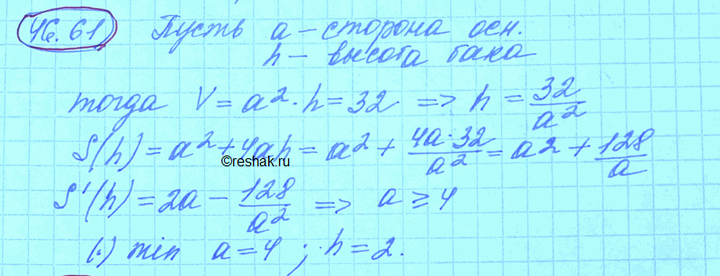 46.61 Пусть a – сторона осн.
h – высота бака
тогда V = a²·h = 32 => h = 32/a²
S(h) = a² + 4ah = a² + 4a·32/a² = a² + 128/a
©reshak.ru
S'(h) = 2a − 128/a² => a ≥ 4
(·) min a = 4 ; h = 2.